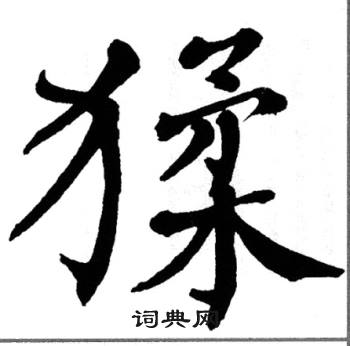 猱
词典网